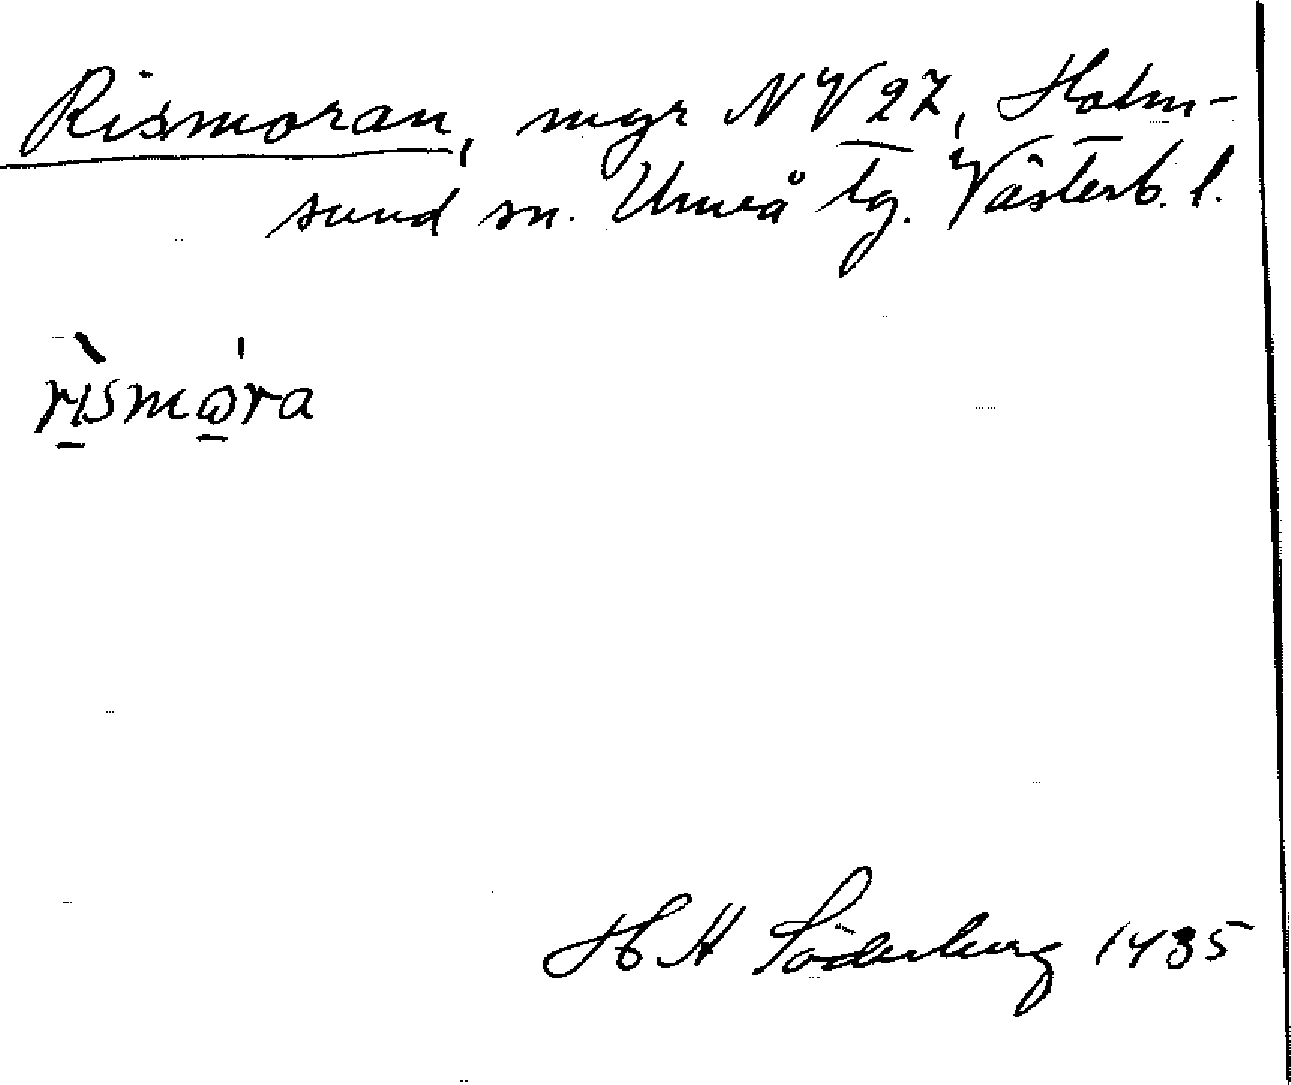 Rismoran, mgr NV 27, Holm-
sund sn. Umeå tg. Västerb. l.
rìsmǫ̠ra
H H Söderberg 1935